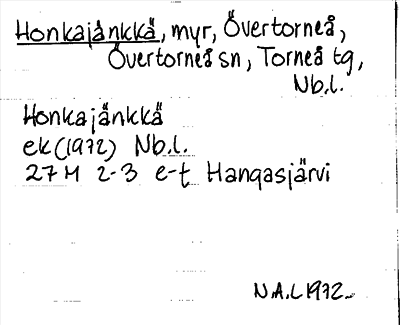 Honkajänkkä, myr, Övertorneå,
Övertorneå sn, Torneå tg,
Nb.l.
Honkajänkkä
ek (1972) Nb.l.
27M 2-3 e-t Hangasjärvi
N.A.L 1972.